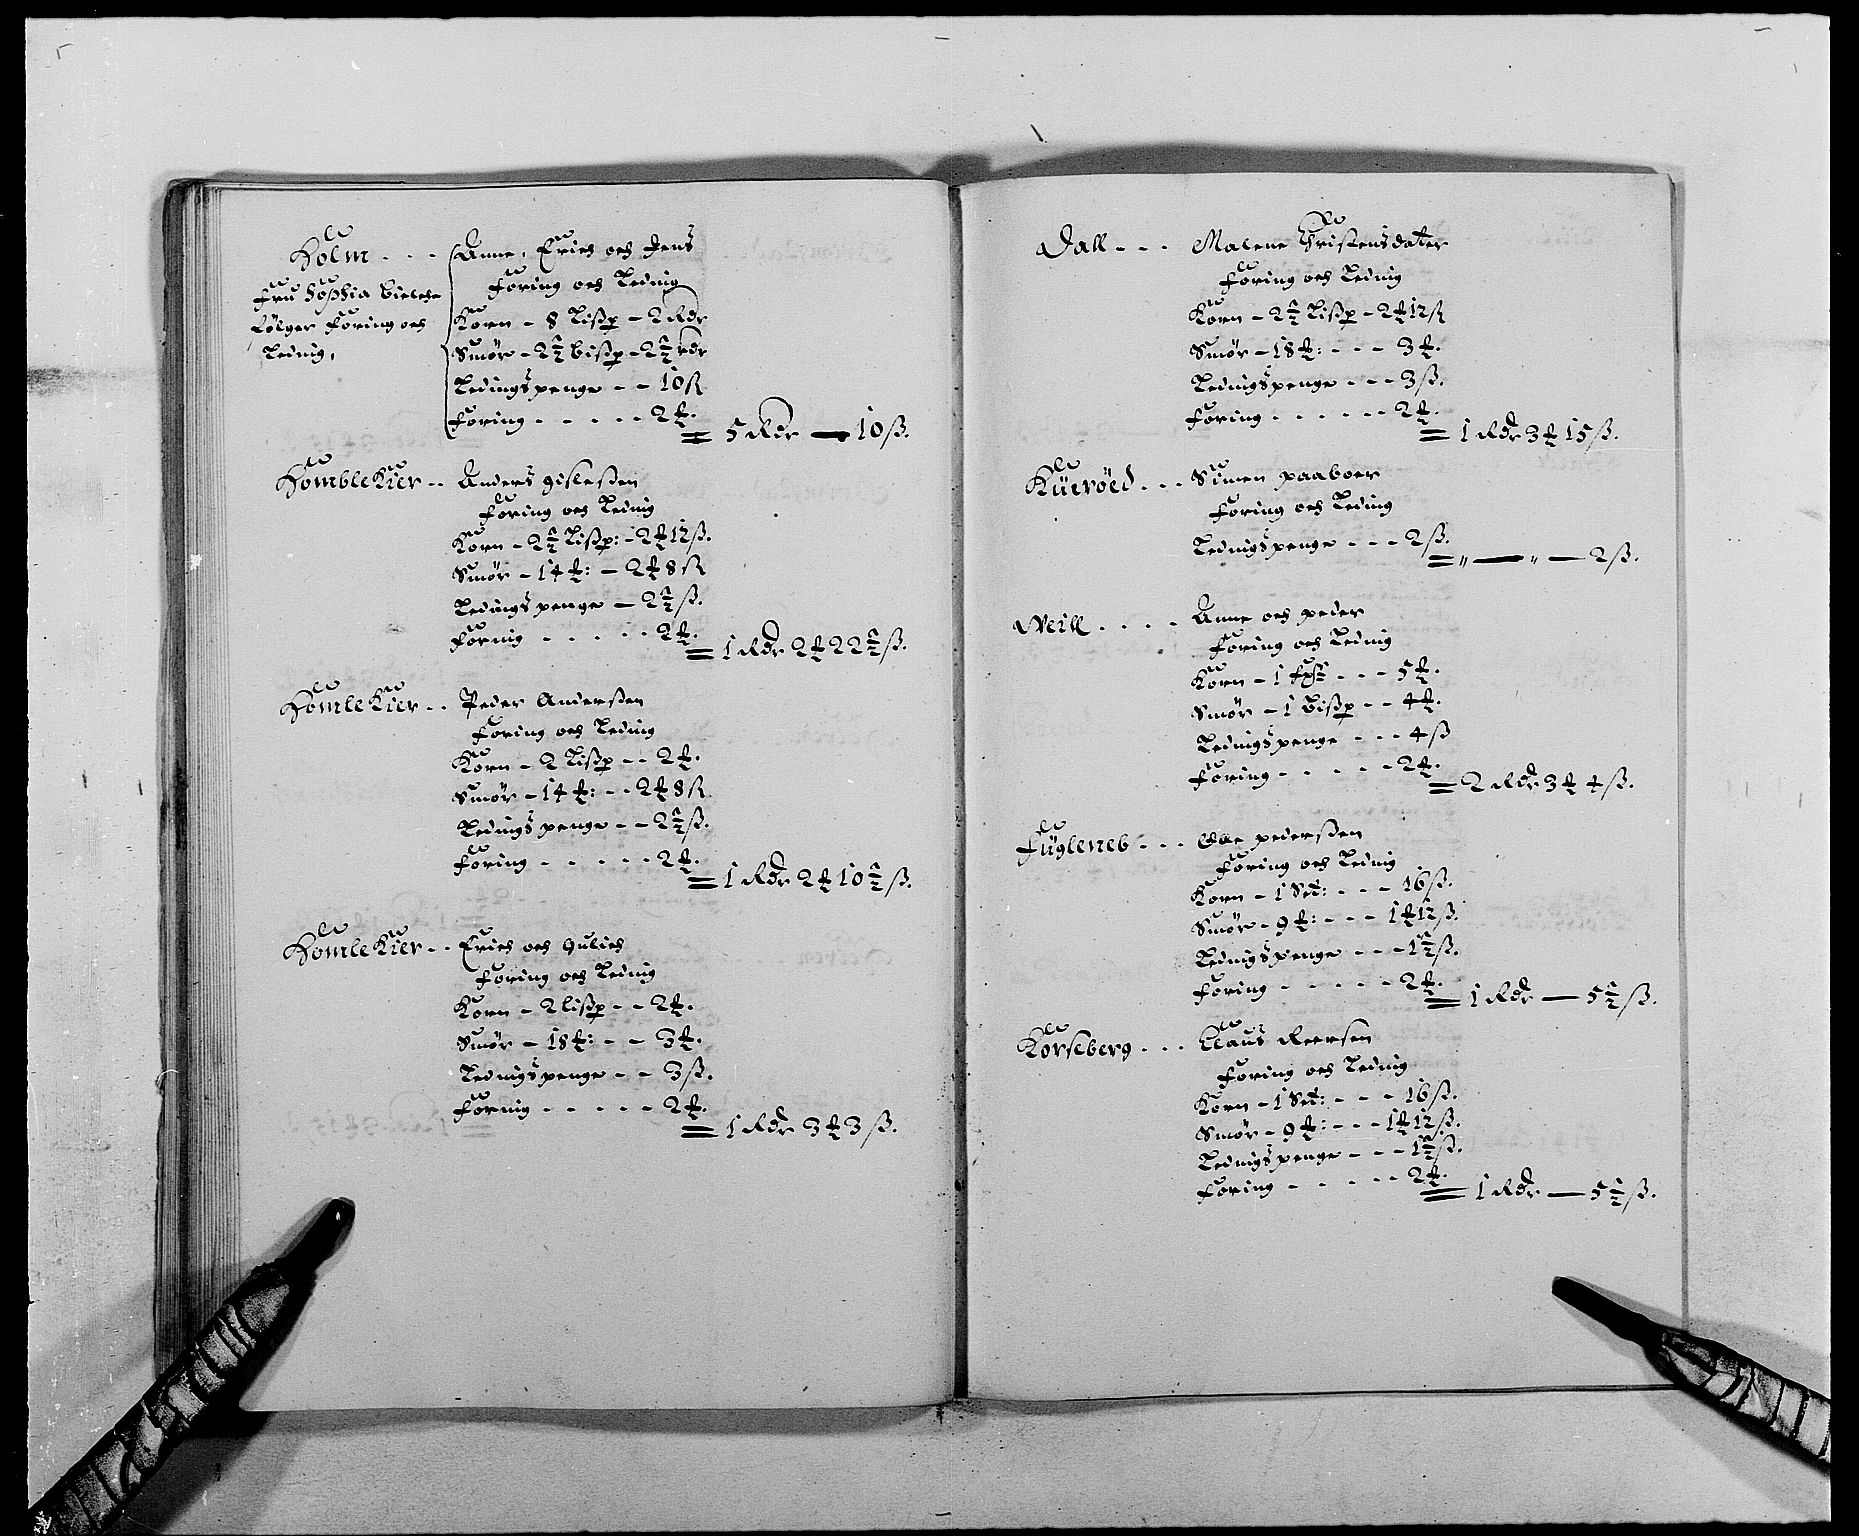 Holm - - - Anne, Erich och Jens
Fru Sophia Bielche
følger Foring och
Leding,
Foring och Leding
Korn - 8 Lispp - 2 Rdr
Smør - 2½ bispp - 2½ rdr
Ledingspenge - - 10 ß
Foring - - - - - 2 ₰.
= 5 Rdr — 10 ß.
Homblekier - - Anders gislesen
Foring och Leding
Korn - 2½ Lispp: - 2 ₰ 12 ß.
Smør - 14 ₰: - 2 ₰ 8 ß
Ledings penge - 2½ ß.
Foring - - - - - 2 ₰.
= 1 Rdr 2 ₰ 22½ ß.
Homlekier - - Peder Andersen
Foring och Leding
Korn - 2 Lispp - - 2 ₰.
Smør - 14 ₰: - - 2 ₰ 8 ß
Ledings penge - - 2½ ß.
Foring - - - - - 2 ₰.
= 1 Rdr 2 ₰ 10½ ß.
Homlekier - - Erich och Gulich
Foring och Leding
Korn - 2 lispp - - 2 ₰.
Smør - 18 ₰: - - 3 ₰.
Ledingspenge - - 3 ß.
Foring - - - - - 2 ₰.
= 1 Rdr 3 ₰ 3 ß.
Dall - - - Malene Christensdater
Foring och Leding
Korn - 2½ Lispp - 2 ₰ 12 ß
Smør - 18 ₰: - - - 3 ₰.
Ledingspenge - - - 3 ß.
Foring - - - - - - 2 ₰.
= 1 Rdr 3 ₰ 15 ß.
Küeröed - - - Simen paaboer
Foring och Leding
Ledingspenge - - - 2 ß.
= " — " — 2 ß.
Weill - - - - Anne och peder
Foring och Leding
Korn - 1 - - - 5 ₰.
Smør - 1 Bispp - - 4 ₰.
Ledingspenge - - - 4 ß
Foring - - - - - 2 ₰.
= 2 Rdr 3 ₰ 4 ß.
Fügleneb - - - Olle pedersen
Foring och Leding
Korn - 1 Set: - - - 16 ß.
Smør - 9 ₰: - - - 1 ₰ 12 ß.
Ledingspenge - - - 1½ ß.
Foring - - - - - 2 ₰.
= 1 Rdr — 5½ ß.
Korseberg - - - Claus Reersen
Foring och Leding
Korn - 1 Set: - - - 16 ß.
Smør - 9 ₰: - - - 1 ₰ 12 ß.
Ledingspenge - - - 1½ ß.
Foring - - - - - 2 ₰.
= 1 Rdr — 5½ ß.